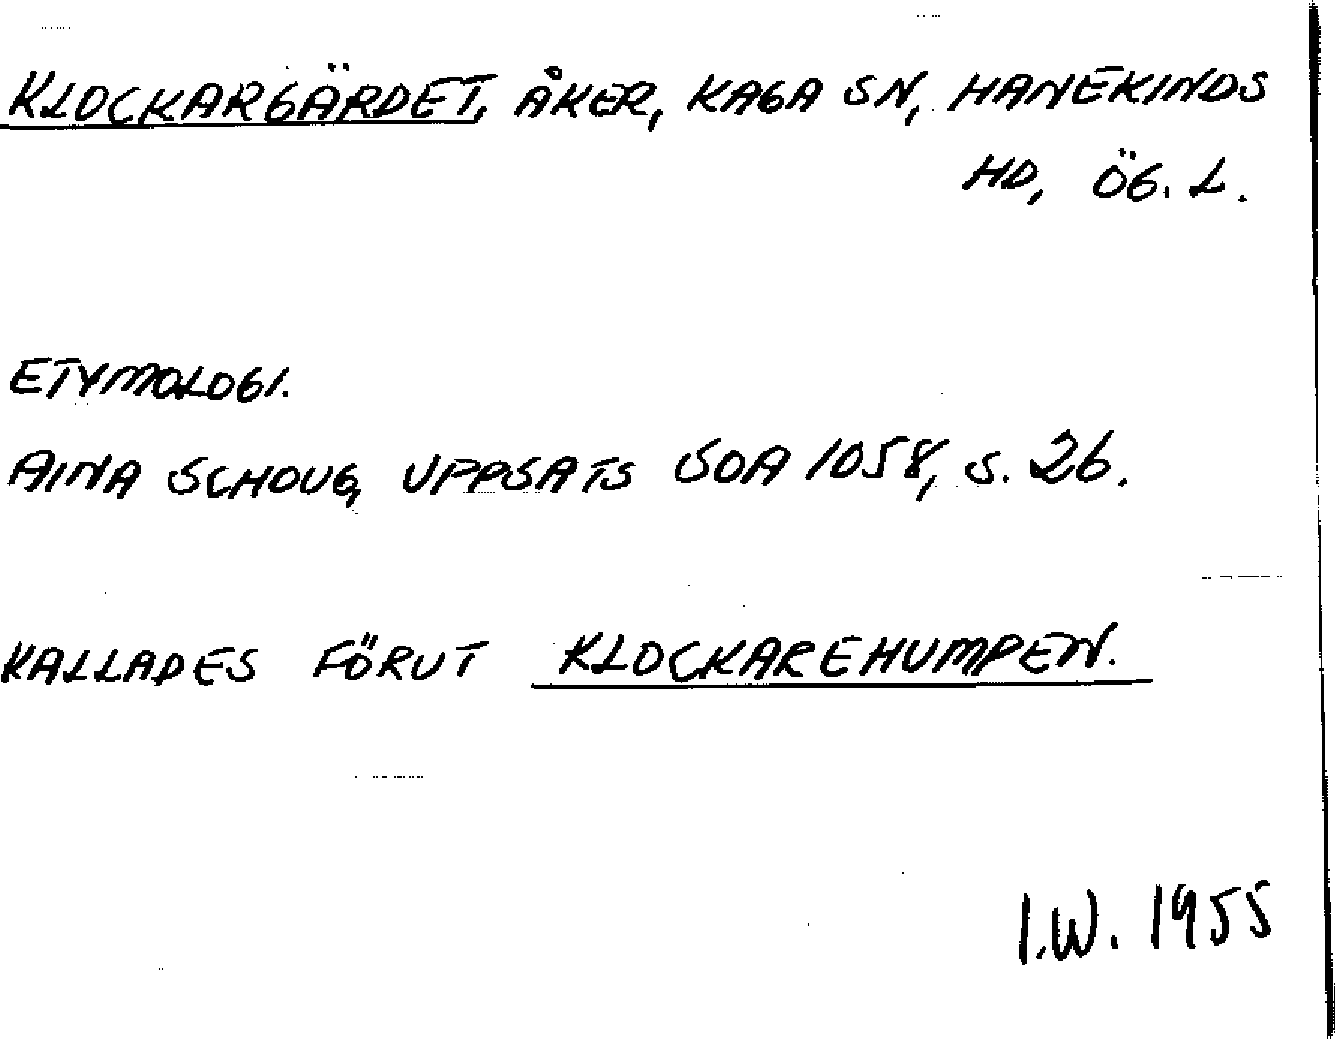 KLOCKARGÄRDET, ÅKER, KAGA SN, HANEKINDS
HD, ÖG. L.
ETYMOLOGI.
AINA SCHOUG, UPPSATS SOA 1058, S. 26.
KALLADES FÖRUT KLOCKAREHUMPEN.
I.W. 1955